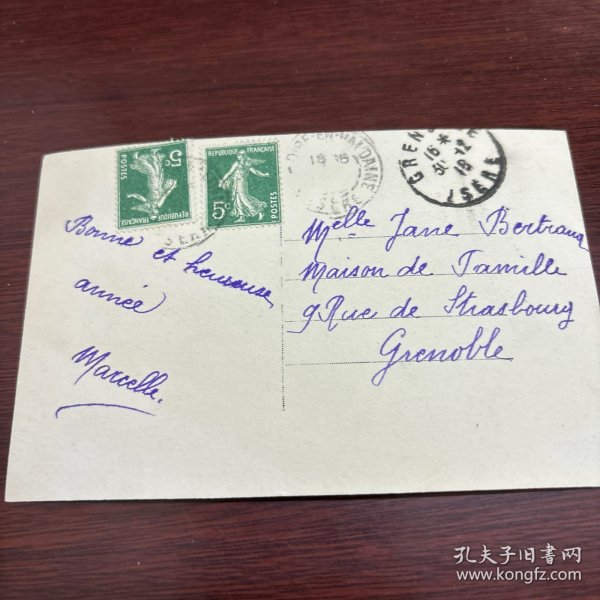 5c
POSTES
REPUBLIQUE FRANÇAISE
REPUBLIQUE FRANÇAISE
5c
POSTES
16 15
ISERE
GREN
15 *
30 12
18
ISERE
Bonne et heureuse
année
Marcelle.
Melle Jane Bertrand
Maison de Famille
9 Rue de Strasbourg
Grenoble
孔夫子旧书网
www.kongfz.com